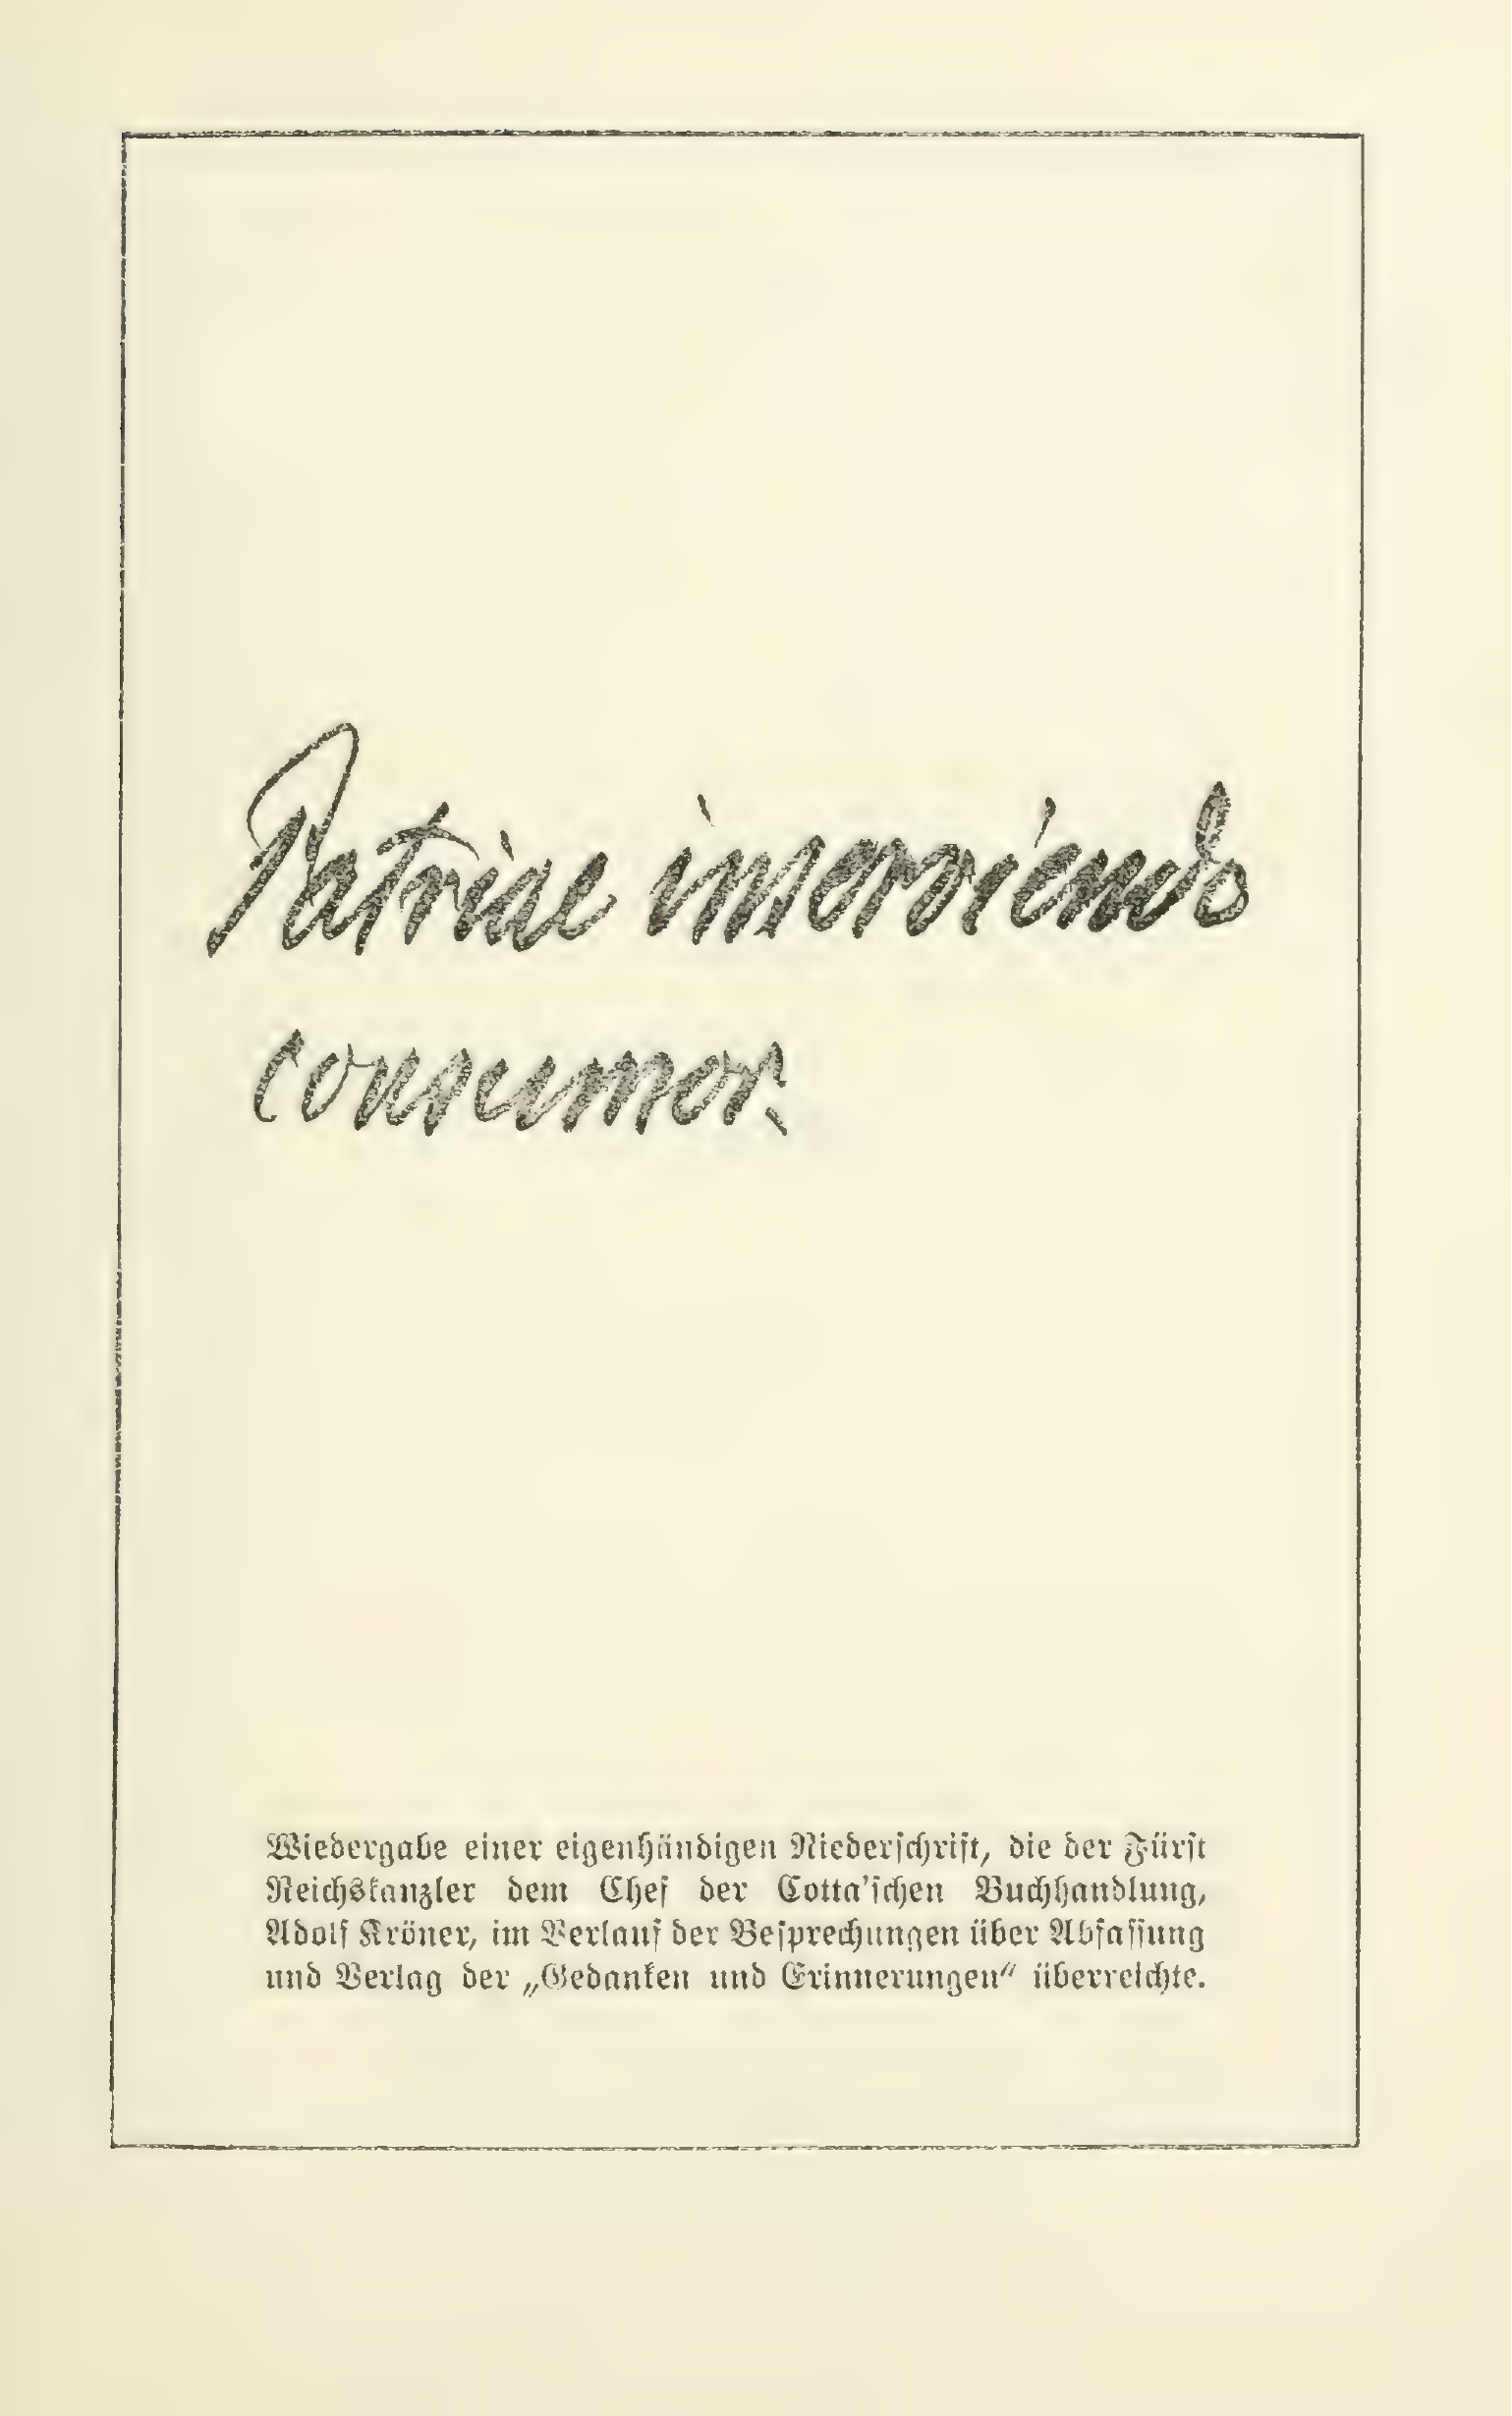 Patriae inserviendo
consumor.
Wiedergabe einer eigenhändigen Niederschrift, die der Fürst
Reichskanzler dem Chef der Cotta'schen Buchhandlung,
Adolf Kröner, im Verlauf der Besprechungen über Abfassung
und Verlag der „Gedanken und Erinnerungen“ überreichte.